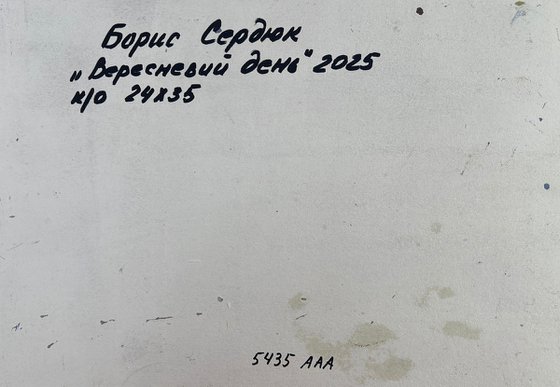 Борис Сердюк
„Вересневий день" 2025
к/о 24х35
5435 ААА